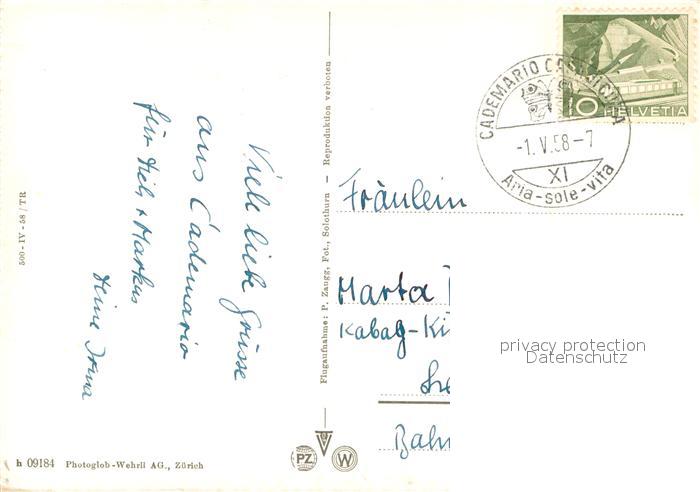 Viele liebe Grüsse
aus Cademario
für Dich + Markus
Deine Irma
500-IV-58/TR
h 09184 Photoglob-Wehrli AG., Zürich
Flugaufnahme: P. Zaugg, Fot., Solothurn — Reproduktion verboten
PZ
W
CADEMARIO
-1.V.58-7
XI
Aria-sole-vita
10
HELVETIA
Fräulein
Marta
Kabag-Ki
Bahn
privacy protection
Datenschutz